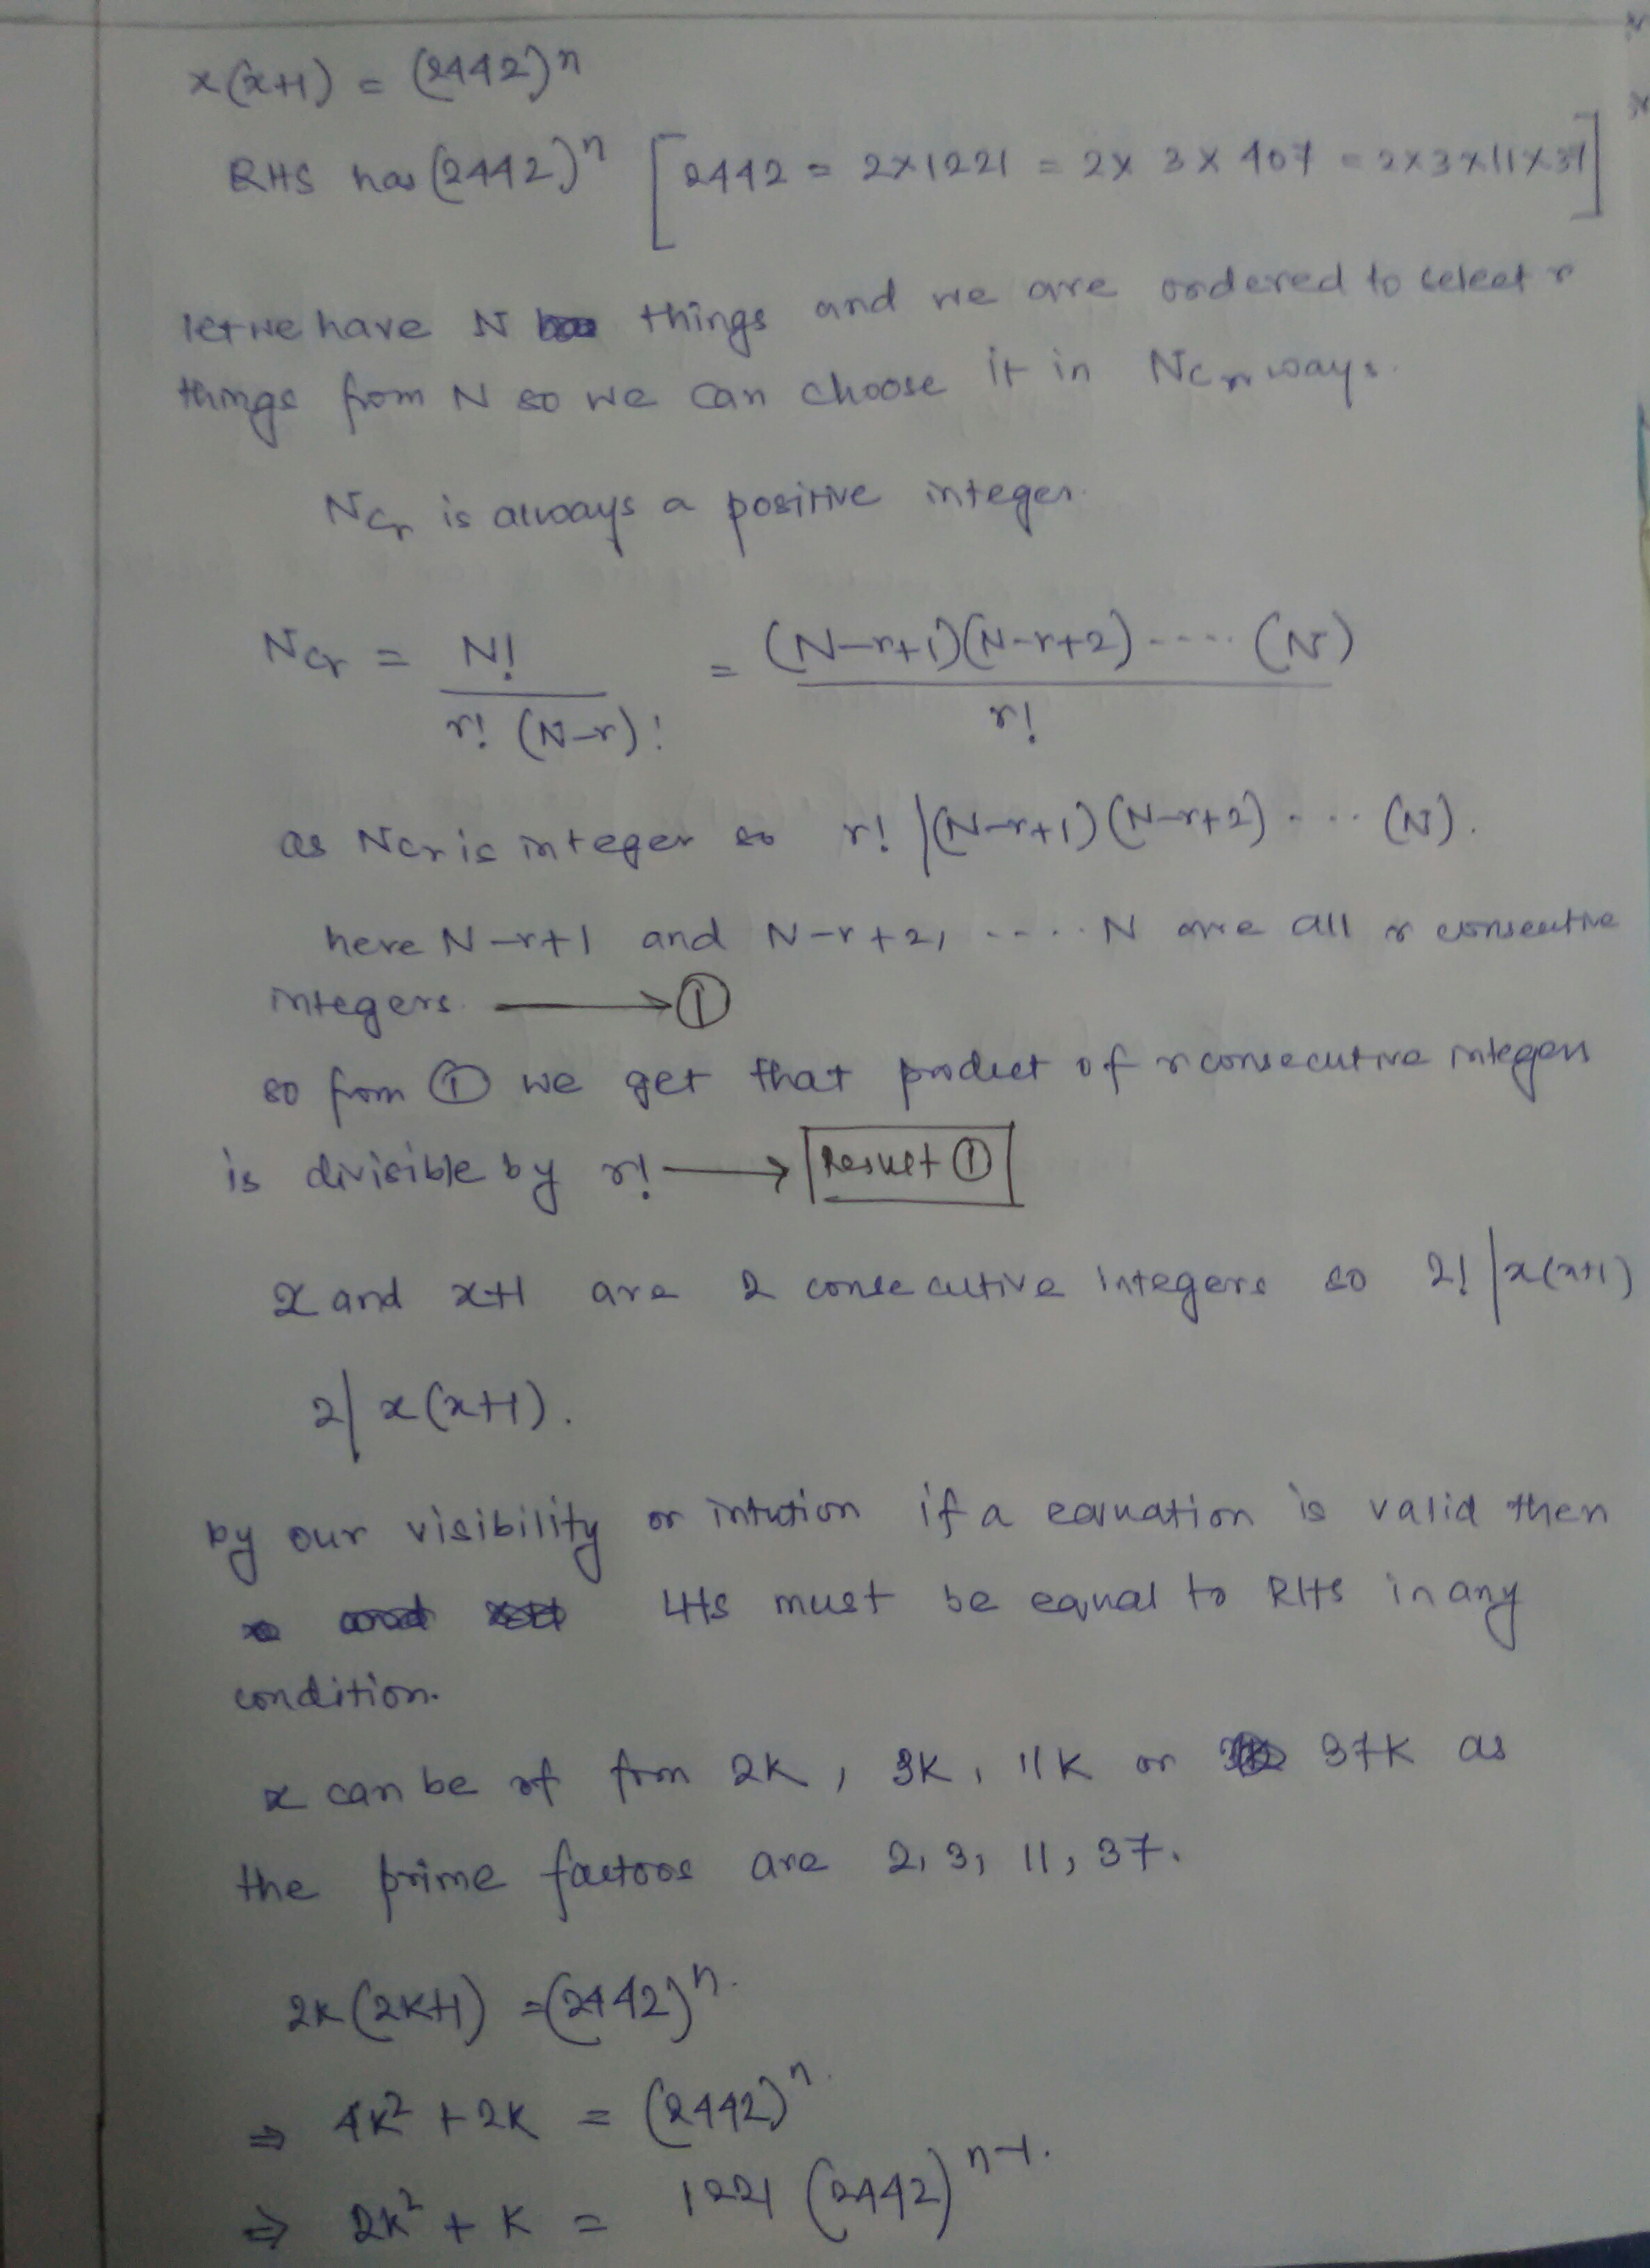 x(x+1) = (2442)^n
RHS has (2442)^n [2442 = 2×1221 = 2×3×407 = 2×3×11×37]
let we have N things and we are ordered to select r
things from N so we can choose it in Ncr ways.
Ncr is always a positive integer.
Ncr = N! / r! (N-r)! = (N-r+1)(N-r+2) ---- (N) / r!
as Ncr is integer so r! | (N-r+1)(N-r+2) - ... (N).
here N-r+1 and N-r+2, ---- . N are all r consecutive
integers. → ①
so from ① we get that product of r consecutive integers
is divisible by r! → Result ①
x and x+1 are 2 consecutive integers so 2! | x(x+1)
2 | x(x+1).
by our visibility or intution if a equation is valid then
LHS must be equal to RHS in any
condition.
x can be of frm 2K, 3K, 11K or 37K as
the prime factors are 2, 3, 11, 37.
2K(2K+1) = (2442)^n.
⇒ 4K² + 2K = (2442)^n.
⇒ 2K² + K = 1221 (2442)^n-1.